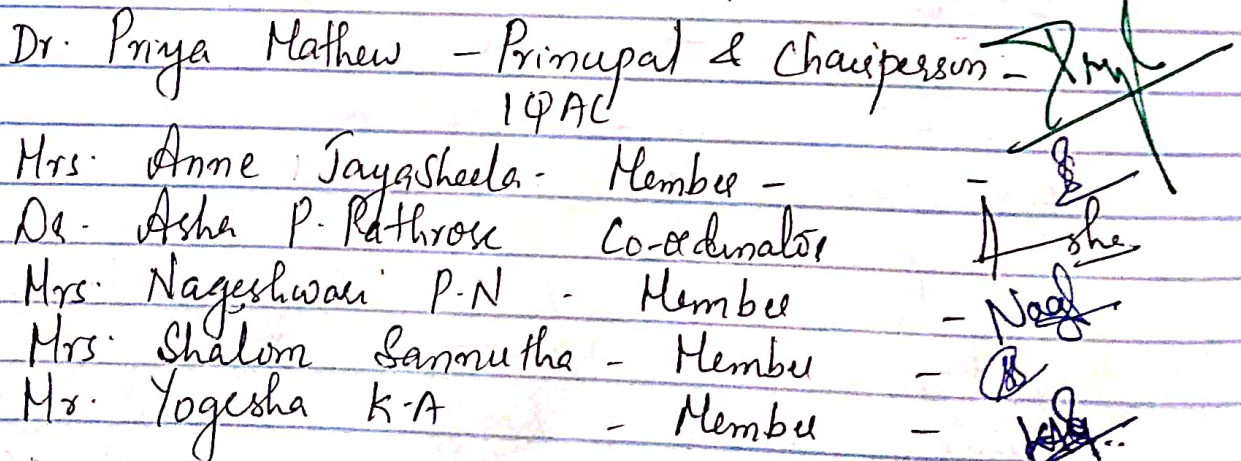 Dr. Priya Mathew - Principal & Chairperson -
IQAC
Mrs. Anne Jayasheela - Member - -
Dr. Asha P. Pathrose Co-ordinator Ashe
Mrs. Nageshwari P.N - Member - Nagf
Mrs. Shalom Sannutha - Member -
Mr. Yogesha K.A - Member -